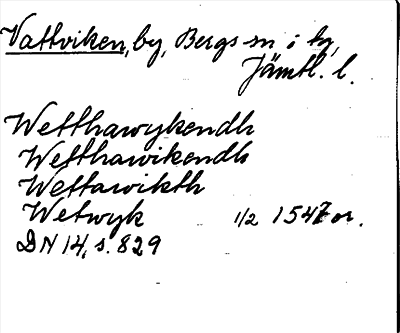 Vattviken, by, Bergs sn i by,
Jämtl. l.
Wetthawykendh
Wetthawikendh
Wettawikth
Wetwyk 1/2 1547 or.
DN 14, s. 829